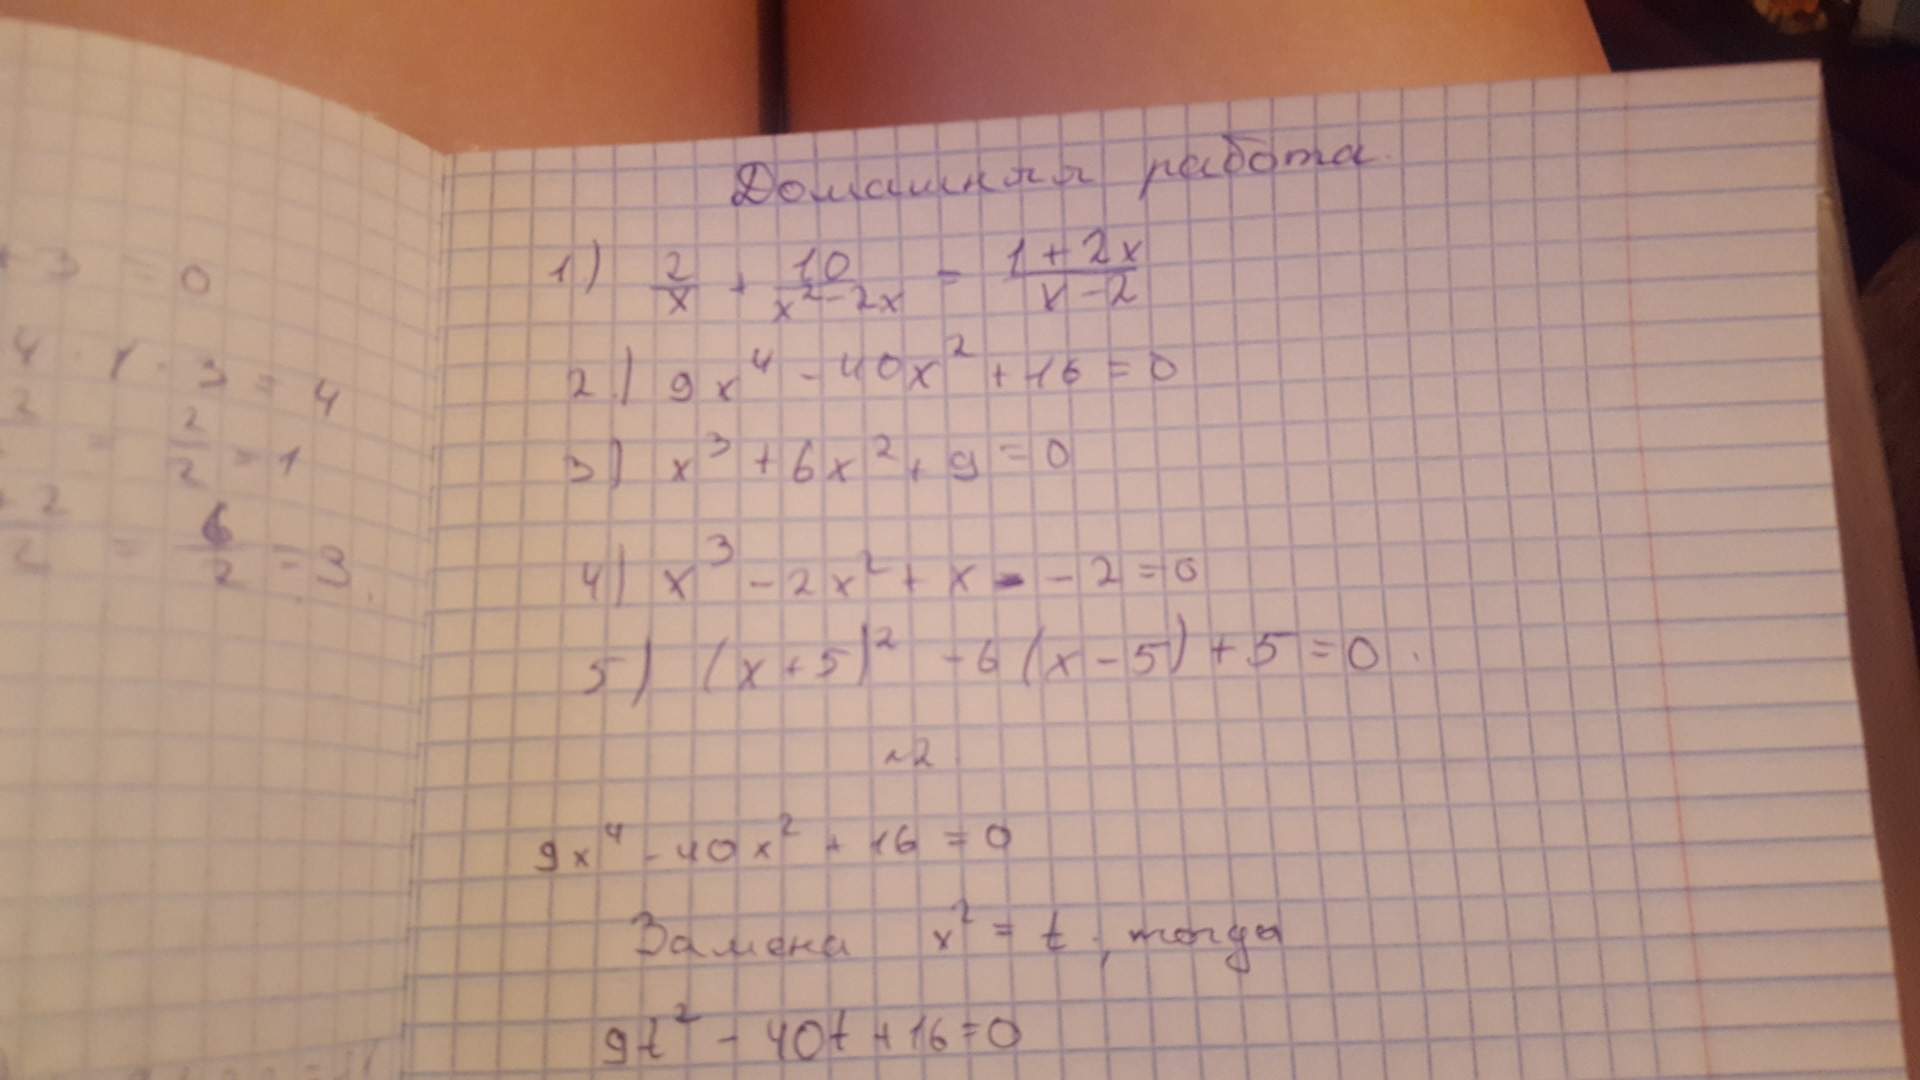 + 3 = 0
4 · 1 · 3 = 4
= 2/2 = 1
+ 2/2 = 6/2 = 3.
Домашняя работа.
1) 2/x + 10/(x² - 2x) = (1 + 2x)/(x - 2)
2) 9x⁴ - 40x² + 16 = 0
3) x³ + 6x² + 9 = 0
4) x³ - 2x² + x - - 2 = 0
5) (x + 5)² - 6(x - 5) + 5 = 0.
~2
9x⁴ - 40x² + 16 = 0
Замена x² = t, тогда
9t² - 40t + 16 = 0